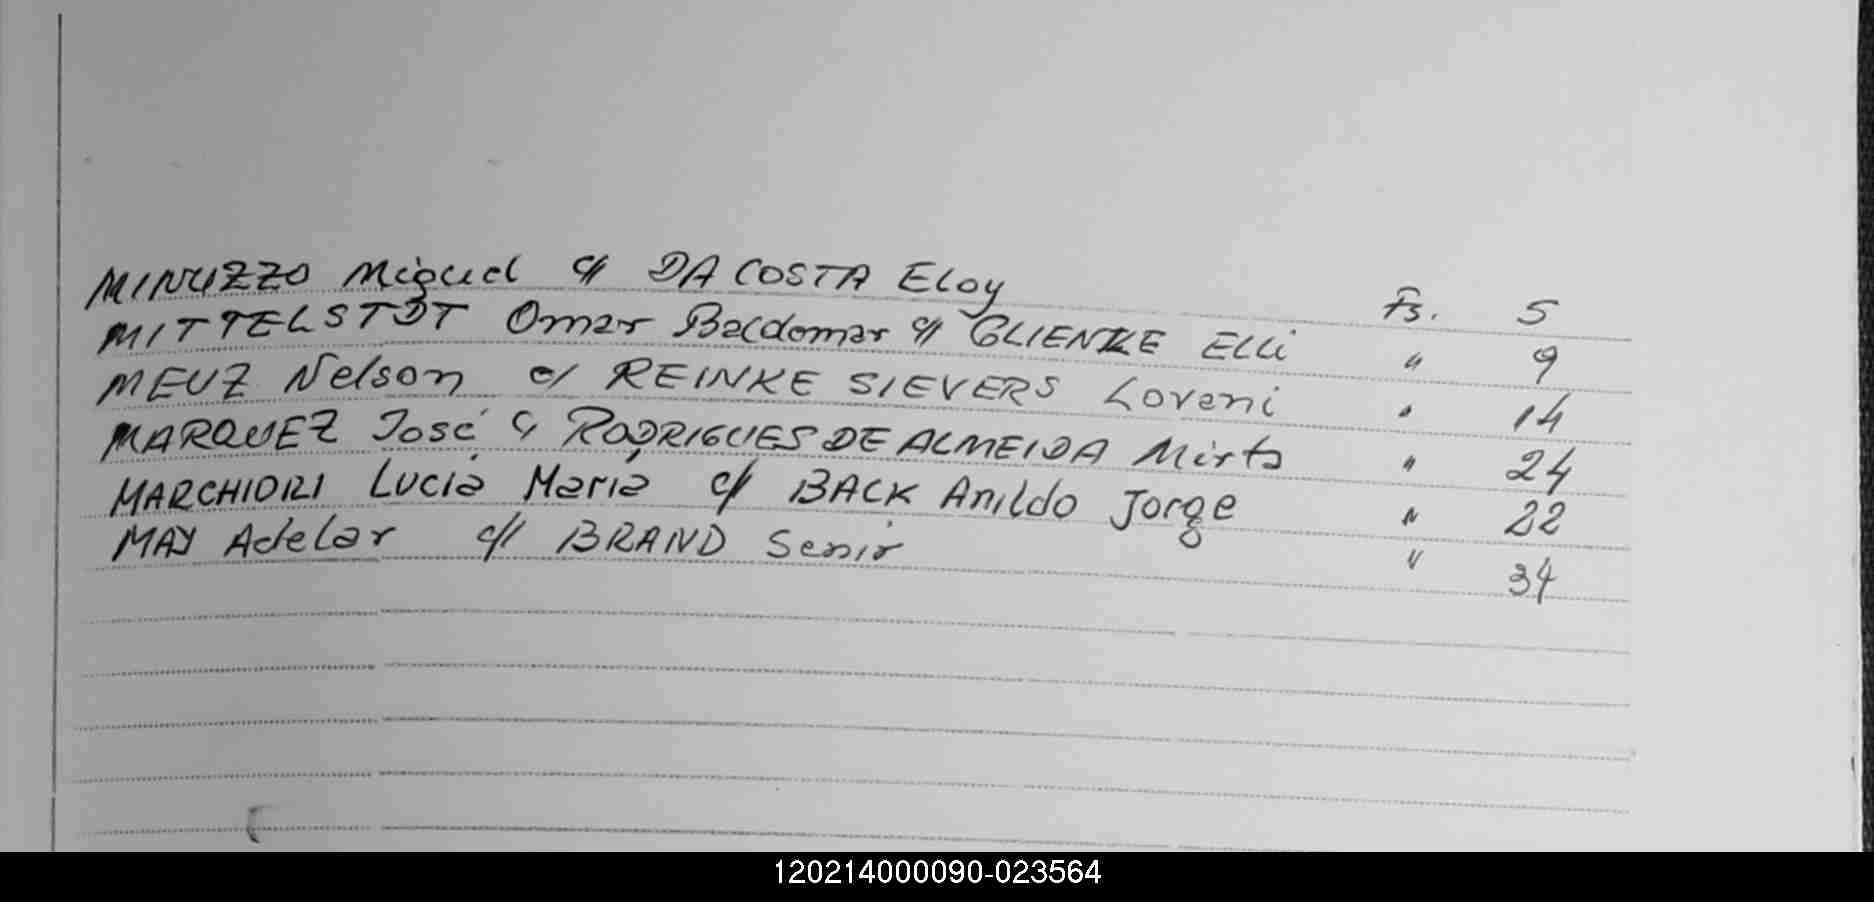 MINUZZO Miguel c/ DA COSTA Eloy Fs. 5
MITTELSTDT Omar Baldomar c/ GLIENKE Elli " 9
MEUZ Nelson c/ REINKE SIEVERS Loreni " 14
MARQUEZ José c/ RODRIGUES DE ALMEIDA Mirta " 24
MARCHIORI Lucia Maria c/ BACK Anildo Jorge " 22
MAY Adelar c/ BRAND Senir " 34
120214000090-023564